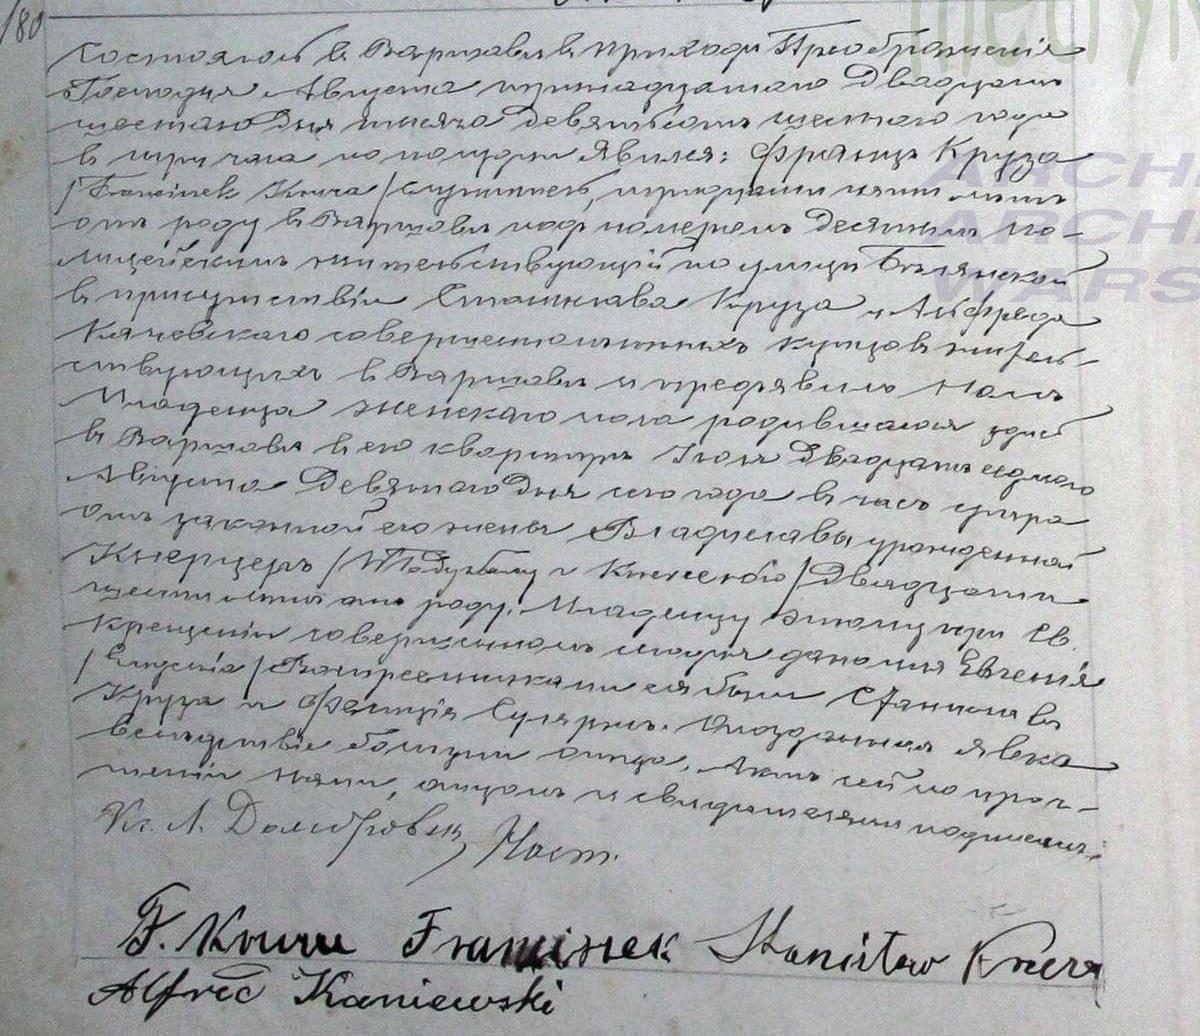 180
Состоялось в Варшаве в приходе Преображения
Господня, Августа тринадцатого Двадцать
шестаго дня тысяча девятьсот шестого года
в три часа по полудни. Явился: Франц Круза
/Franciszek Kruza/ служитель, тридцати пяти лет
от роду в Варшаве под номером десятым по-
лицейским жительствующий по улице Белянской
в присутствии Станислава Круза и Альфреда
совершеннолетних купцов житель-
ствующих в Варшаве и предъявил Нам
Младенца женскаго пола родившагося здесь
в Варшаве в его квартире Июля Двадцать седмого
Августа Девятаго дня сего года в час утра
от законной его жены Владиславы урожденной
/Двадцати
шести лет от роду. Младенцу этому при Св.
Крещении совершенном сегодня дано имя Евгения
/Eugenia/ Восприемниками его были Станислав
Круза и Фелиция Опозданная явка
вследствие болезни отца. Акт сей по проч-
тении Нами, отцом и свидетелями подписан:
Кс. Л. Домбровск, Наст.
F. Kruza Franciszek Stanisław Kruza
Alfred Kaniewski
medyk
ARCHI
ARCHI
WARS